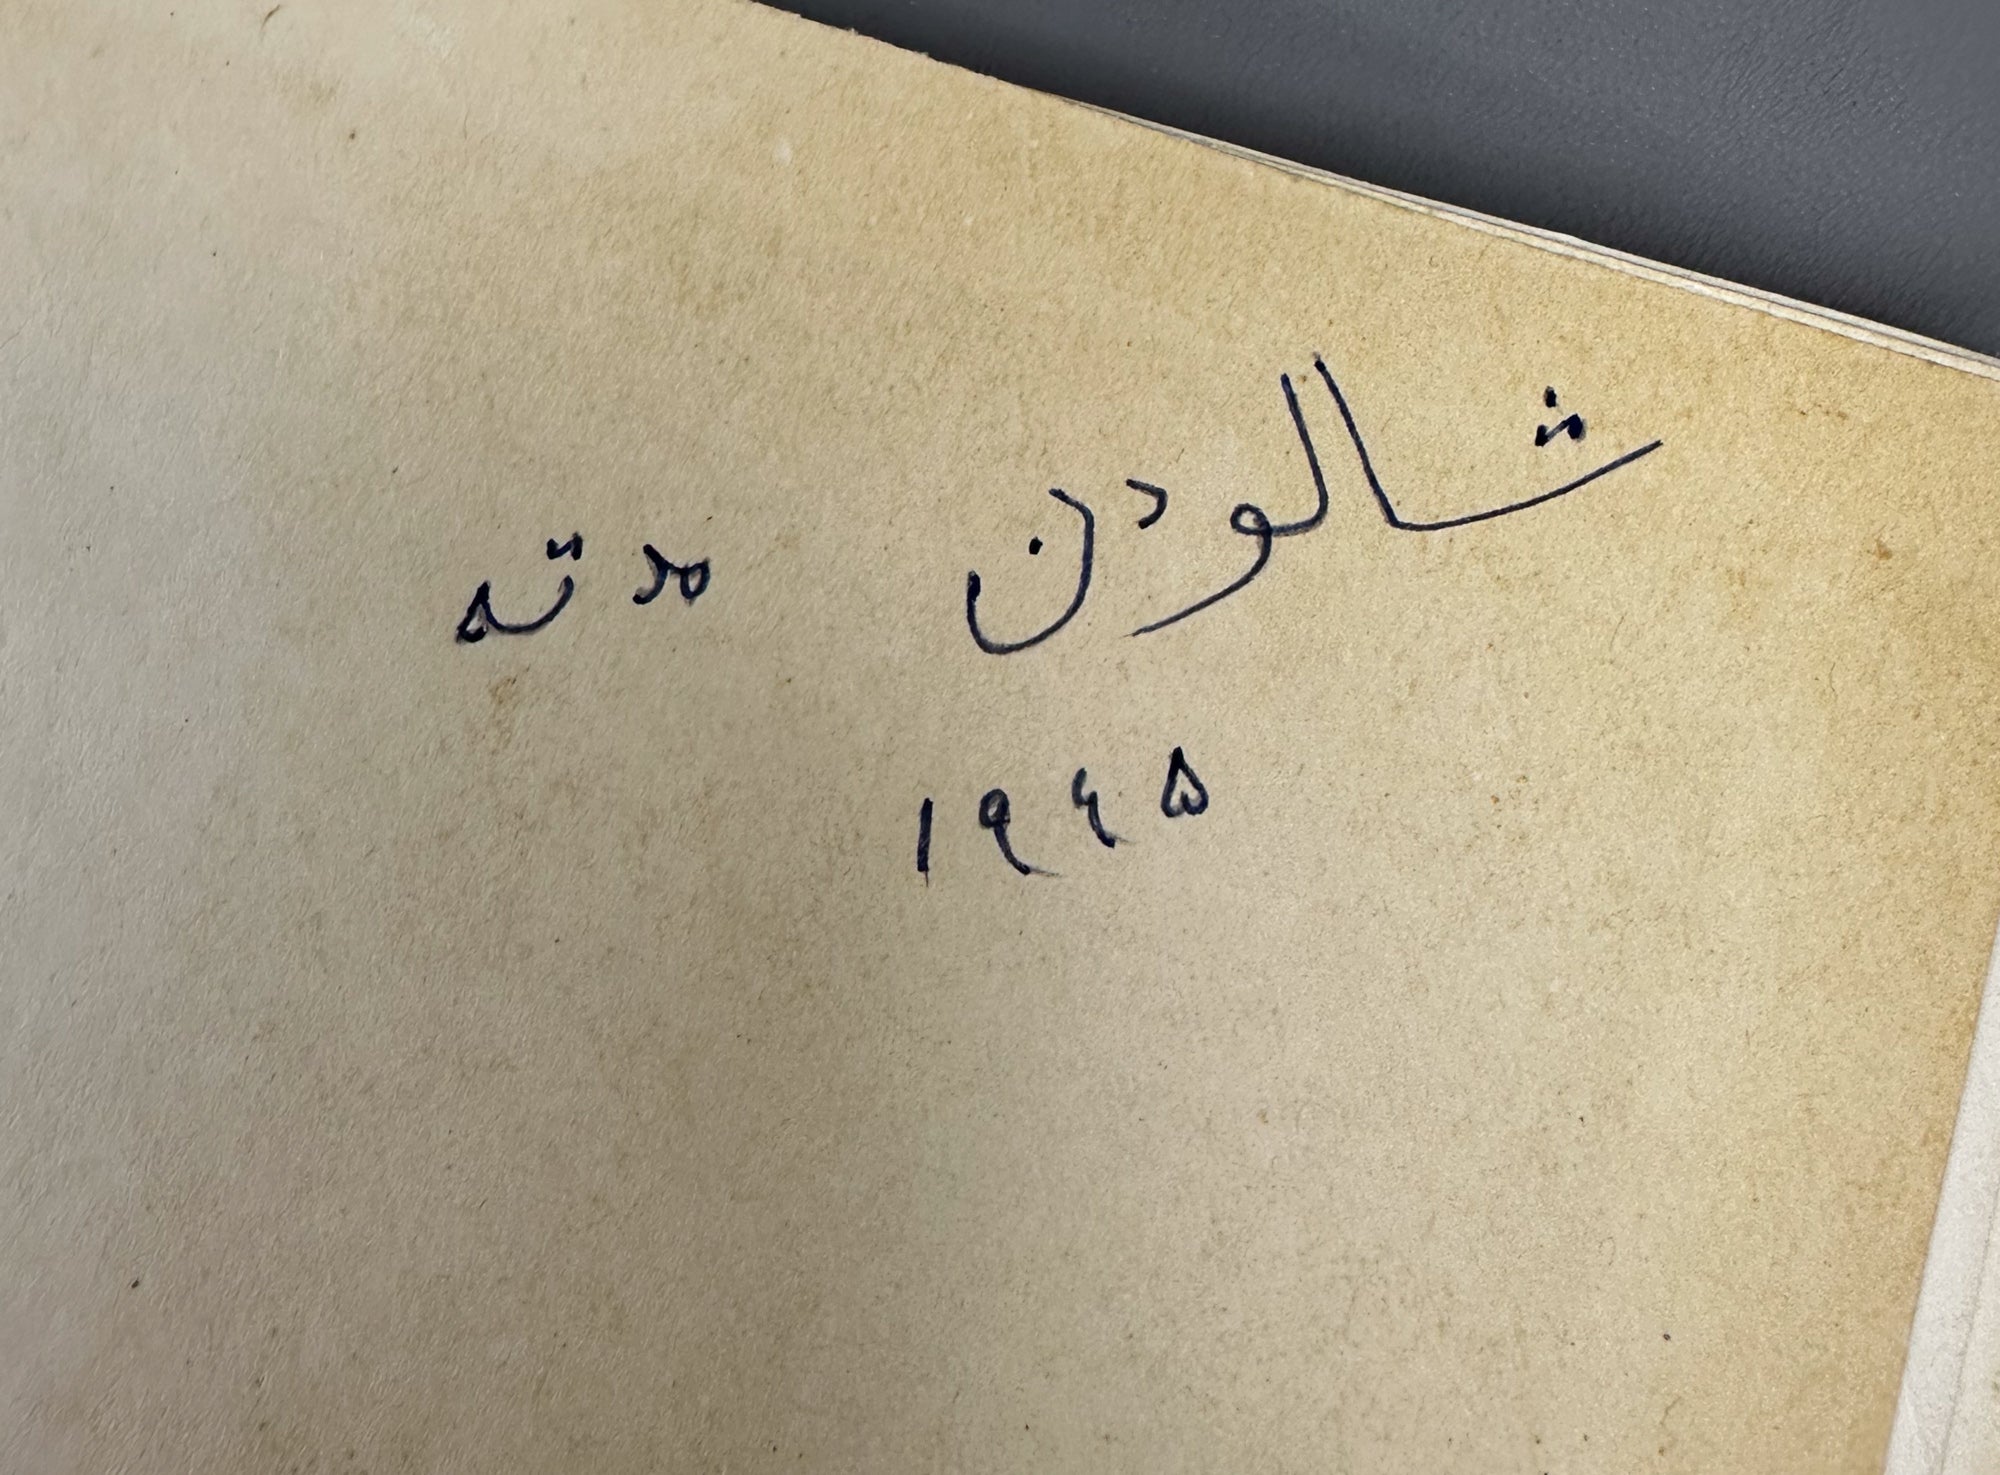 شالودن مدته
۱۹۶۵